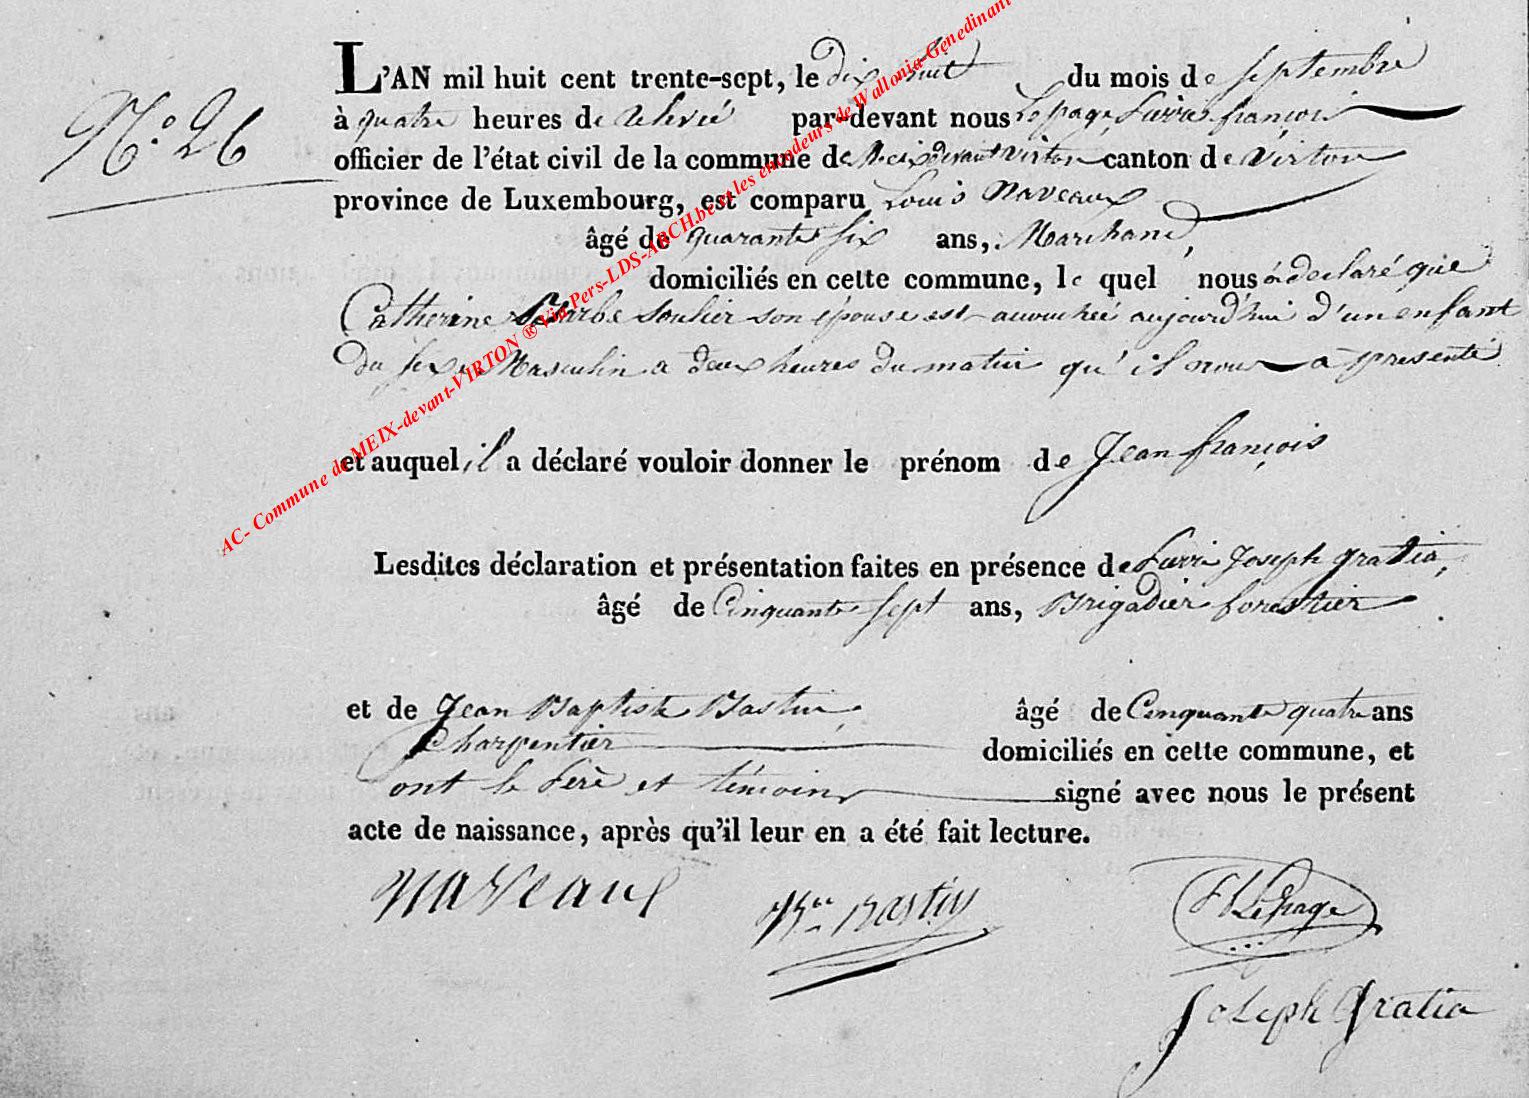 N.° 26
L'AN mil huit cent trente-sept, le dix huit du mois de septembre
à quatre heures de relevée par-devant nous Lepage Pierre françois
officier de l'état civil de la commune de Meix devant virton canton de virton
province de Luxembourg, est comparu Louis Naveaux
âgé de quarante six ans, Marchand,
domiciliés en cette commune, le quel nous a declaré que
Catherine Barbe Soulier son épouse est accouchée aujourd'hui d'un enfant
du sexe Masculin a deux heures du matin qu'il nous a presenté
et auquel il a déclaré vouloir donner le prénom de Jean françois
Lesdites déclaration et présentation faites en présence de Pierre Joseph gratia,
âgé de Cinquante sept ans, Brigadier forestier
et de Jean Baptiste Bastin, âgé de Cinquante quatre ans
Charpentier domiciliés en cette commune, et
ont le Père et témoins signé avec nous le présent
acte de naissance, après qu'il leur en a été fait lecture.
Naveaux Bastin Lepage
Joseph Gratia
AC- Commune de MEIX-devant-VIRTON ® Via Pers-LDS-ARCH.be et les encodeurs de Wallonia-Genedinant